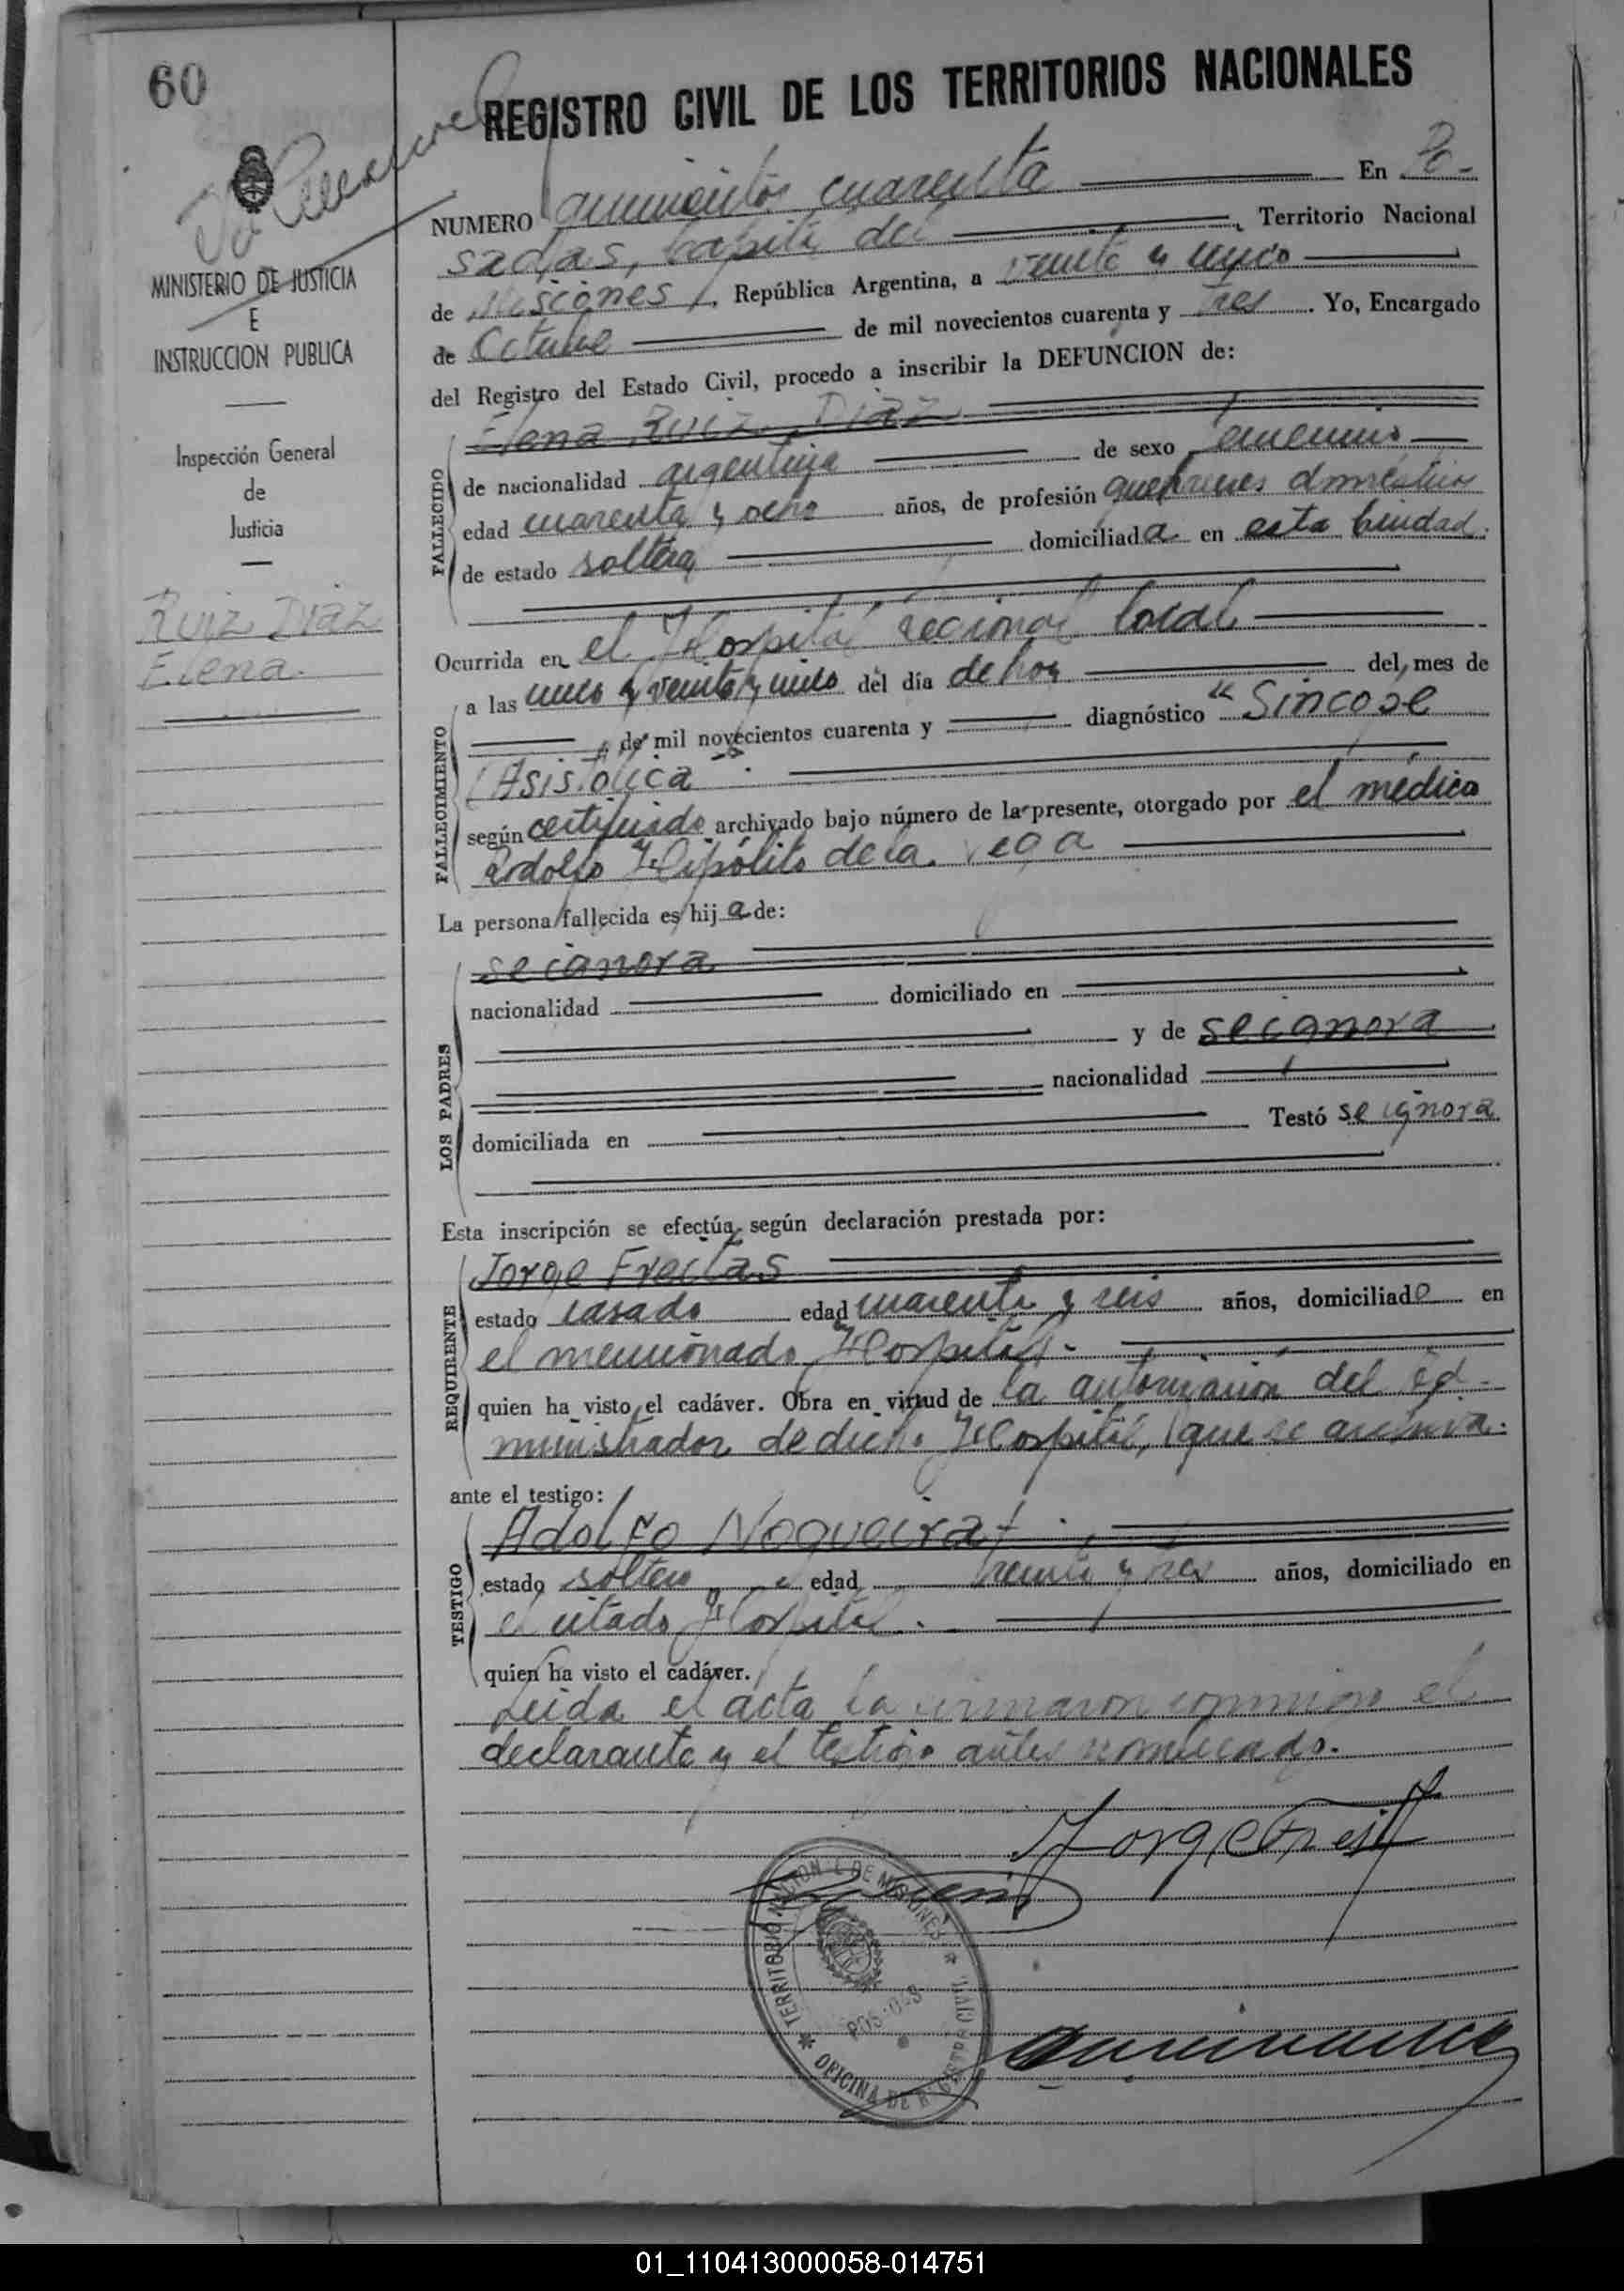 60
REGISTRO CIVIL DE LOS TERRITORIOS NACIONALES
NUMERO quinientos cuarenta En Po-
sadas, Capital del Territorio Nacional
de Misiones, República Argentina, a veinte y
de Octubre de mil novecientos cuarenta y tres. Yo, Encargado
del Registro del Estado Civil, procedo a inscribir la DEFUNCION de:
MINISTERIO DE JUSTICIA
E
INSTRUCCION PUBLICA
Inspección General
de
Justicia
Ruiz Diaz
Elena.
FALLECIDO
Elena Ruiz Diaz
de nacionalidad argentina de sexo femenino
edad cuarenta y ocho años, de profesión quehaceres domésticos
de estado soltera domiciliada en esta Ciudad.
Ocurrida en el Hospital regional local
FALLECIMIENTO
a las y veinte y del día de hoy del mes de
de mil novecientos cuarenta y diagnóstico "Sincope
Asistolica".
según certificado archivado bajo número de la presente, otorgado por el médico
Adolfo Hipólito de la Vega
La persona fallecida es hija de:
LOS PADRES
se ignora
nacionalidad domiciliado en
y de se ignora
nacionalidad
domiciliada en Testó se ignora
Esta inscripción se efectúa según declaración prestada por:
REQUIRENTE
Jorge Freitas
estado casado edad cuarenta y seis años, domiciliado en
el mencionado Hospital.
quien ha visto el cadáver. Obra en virtud de la autorización del Ad-
ministrador de dicho Hospital, que se archiva.
ante el testigo:
TESTIGO
Adolfo Nogueira
estado soltero edad treinta y tres años, domiciliado en
el citado Hospital.
quien ha visto el cadáver.
Leida el acta la firmaron conmigo el
declarante y el testigo antes nombrado.
Jorge Freit
TERRITORIO NACIONAL DE MISIONES
POSADAS
OFICINA DE REGISTRO CIVIL
01_110413000058-014751